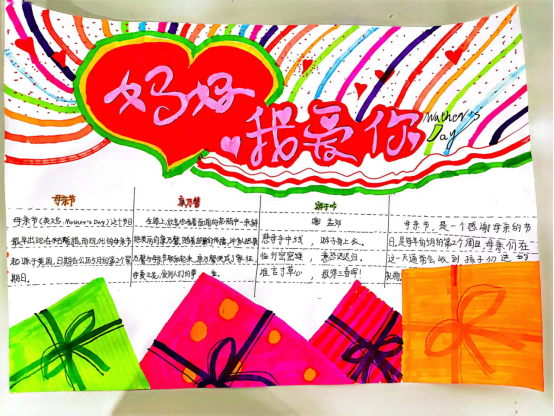 妈好
我爱你
Mather's
Day
母亲节
母亲节(英文名，Mother's Day)这个节
最早出现在古希腊，而现代的母亲节
起源于美国，日期在公历5月的第2个星
期日。
康乃馨
游子吟
唐 孟郊
慈母手中线，游子身上衣。
临行密密缝，意恐迟迟归。
谁言寸草心，报得三春晖！
母亲节，是一个感谢母亲的节
日，是每年5月的第2个周日，母亲们在
这一天通常会收到孩子们送的
礼物